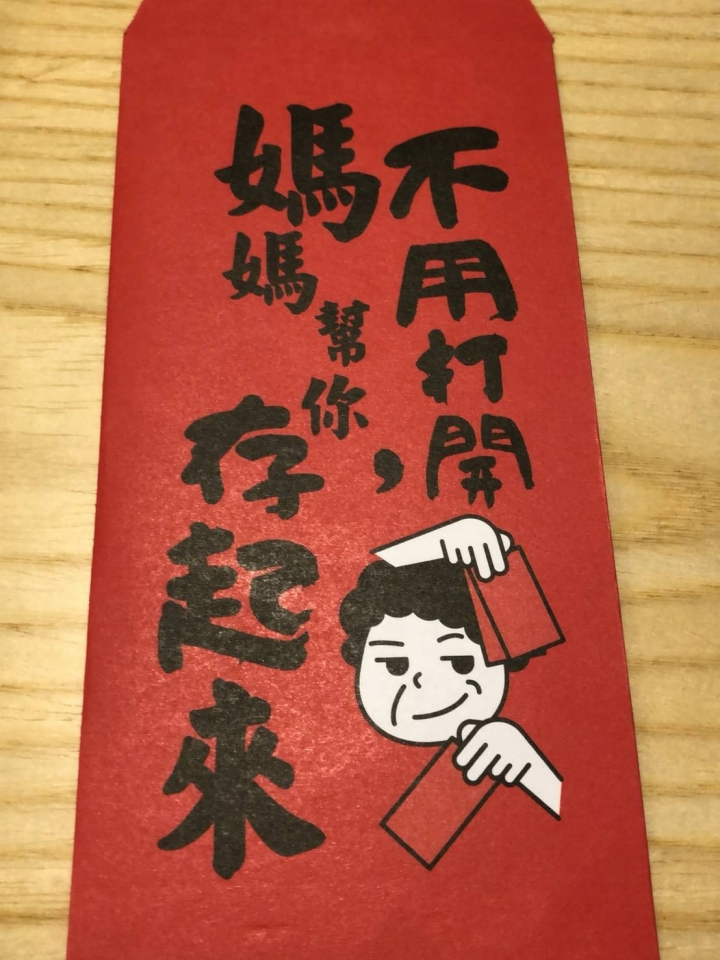 不用打開，
媽媽幫你
存起來